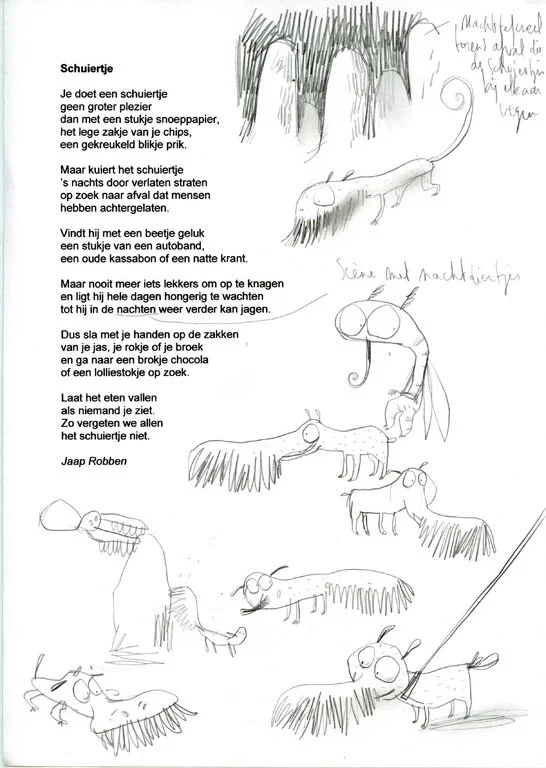 Schuiertje
Je doet een schuiertje
geen groter plezier
dan met een stukje snoeppapier,
het lege zakje van je chips,
een gekreukeld blikje prik.
Maar kuiert het schuiertje
's nachts door verlaten straten
op zoek naar afval dat mensen
hebben achtergelaten.
Vindt hij met een beetje geluk
een stukje van een autoband,
een oude kassabon of een natte krant.
Maar nooit meer iets lekkers om op te knagen
en ligt hij hele dagen hongerig te wachten
tot hij in de nachten weer verder kan jagen.
Dus sla met je handen op de zakken
van je jas, je rokje of je broek
en ga naar een brokje chocola
of een lolliestokje op zoek.
Laat het eten vallen
als niemand je ziet.
Zo vergeten we allen
het schuiertje niet.
Jaap Robben
afval die
de schuiertjes
bij elkaar
vegen
Scène met nachtdiertjes